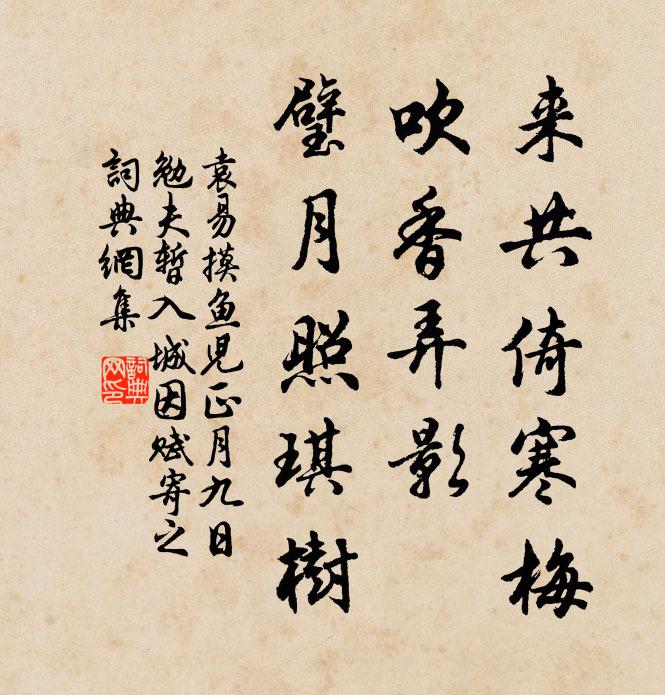 来共倚寒梅
吹香弄影
璧月照琪樹
袁易摸魚児正月九日
勉夫暫入城因赋寄之
詞典網集
詞典
网印